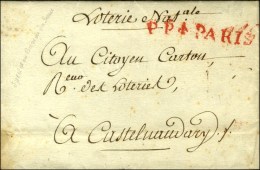 Loterie Nat.ale
P.P.4 PARIS
Au Citoyen Carton,
R.eur des Loteries,
à Castelnaudary ./.